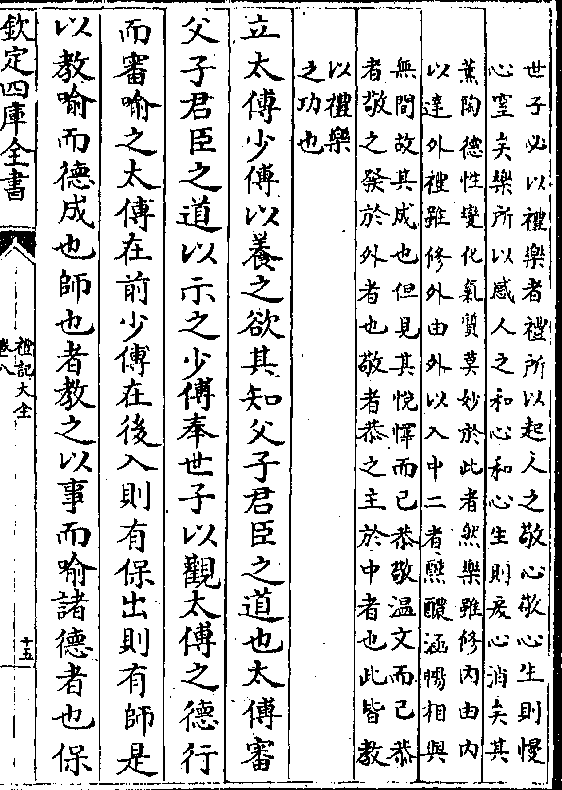 世子必以禮樂者禮所以起人之敬心敬心生則慢
心窒矣樂所以感人之和心和心生則戾心消矣其
薰陶德性變化氣質莫妙於此者然樂雖修內由內
以達外禮雖修外由外以入中二者熙醲涵暢相與
無間故其成也但見其悅懌而已恭敬温文而已恭
者敬之發於外者也敬者恭之主於中者也此皆教
以禮樂
之功也
立太傅少傅以養之欲其知父子君臣之道也太傅審
父子君臣之道以示之少傅奉世子以觀太傅之德行
而審喻之太傅在前少傅在後入則有保出則有師是
以教喻而德成也師也者教之以事而喻諸德者也保
欽定四庫全書
禮記大全
卷八
十五